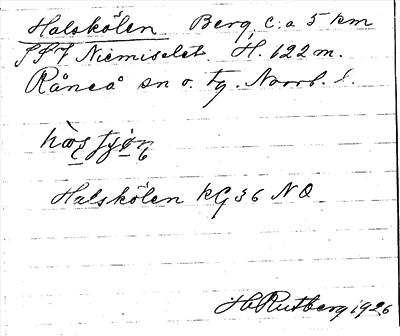 Halskölen Berg, c:a 5 km
SSV Niemiselet. H. 122 m.
Råneå sn o. tg. Norrb. l.
Halskölen kG 36 NO
H. Rutberg 1926